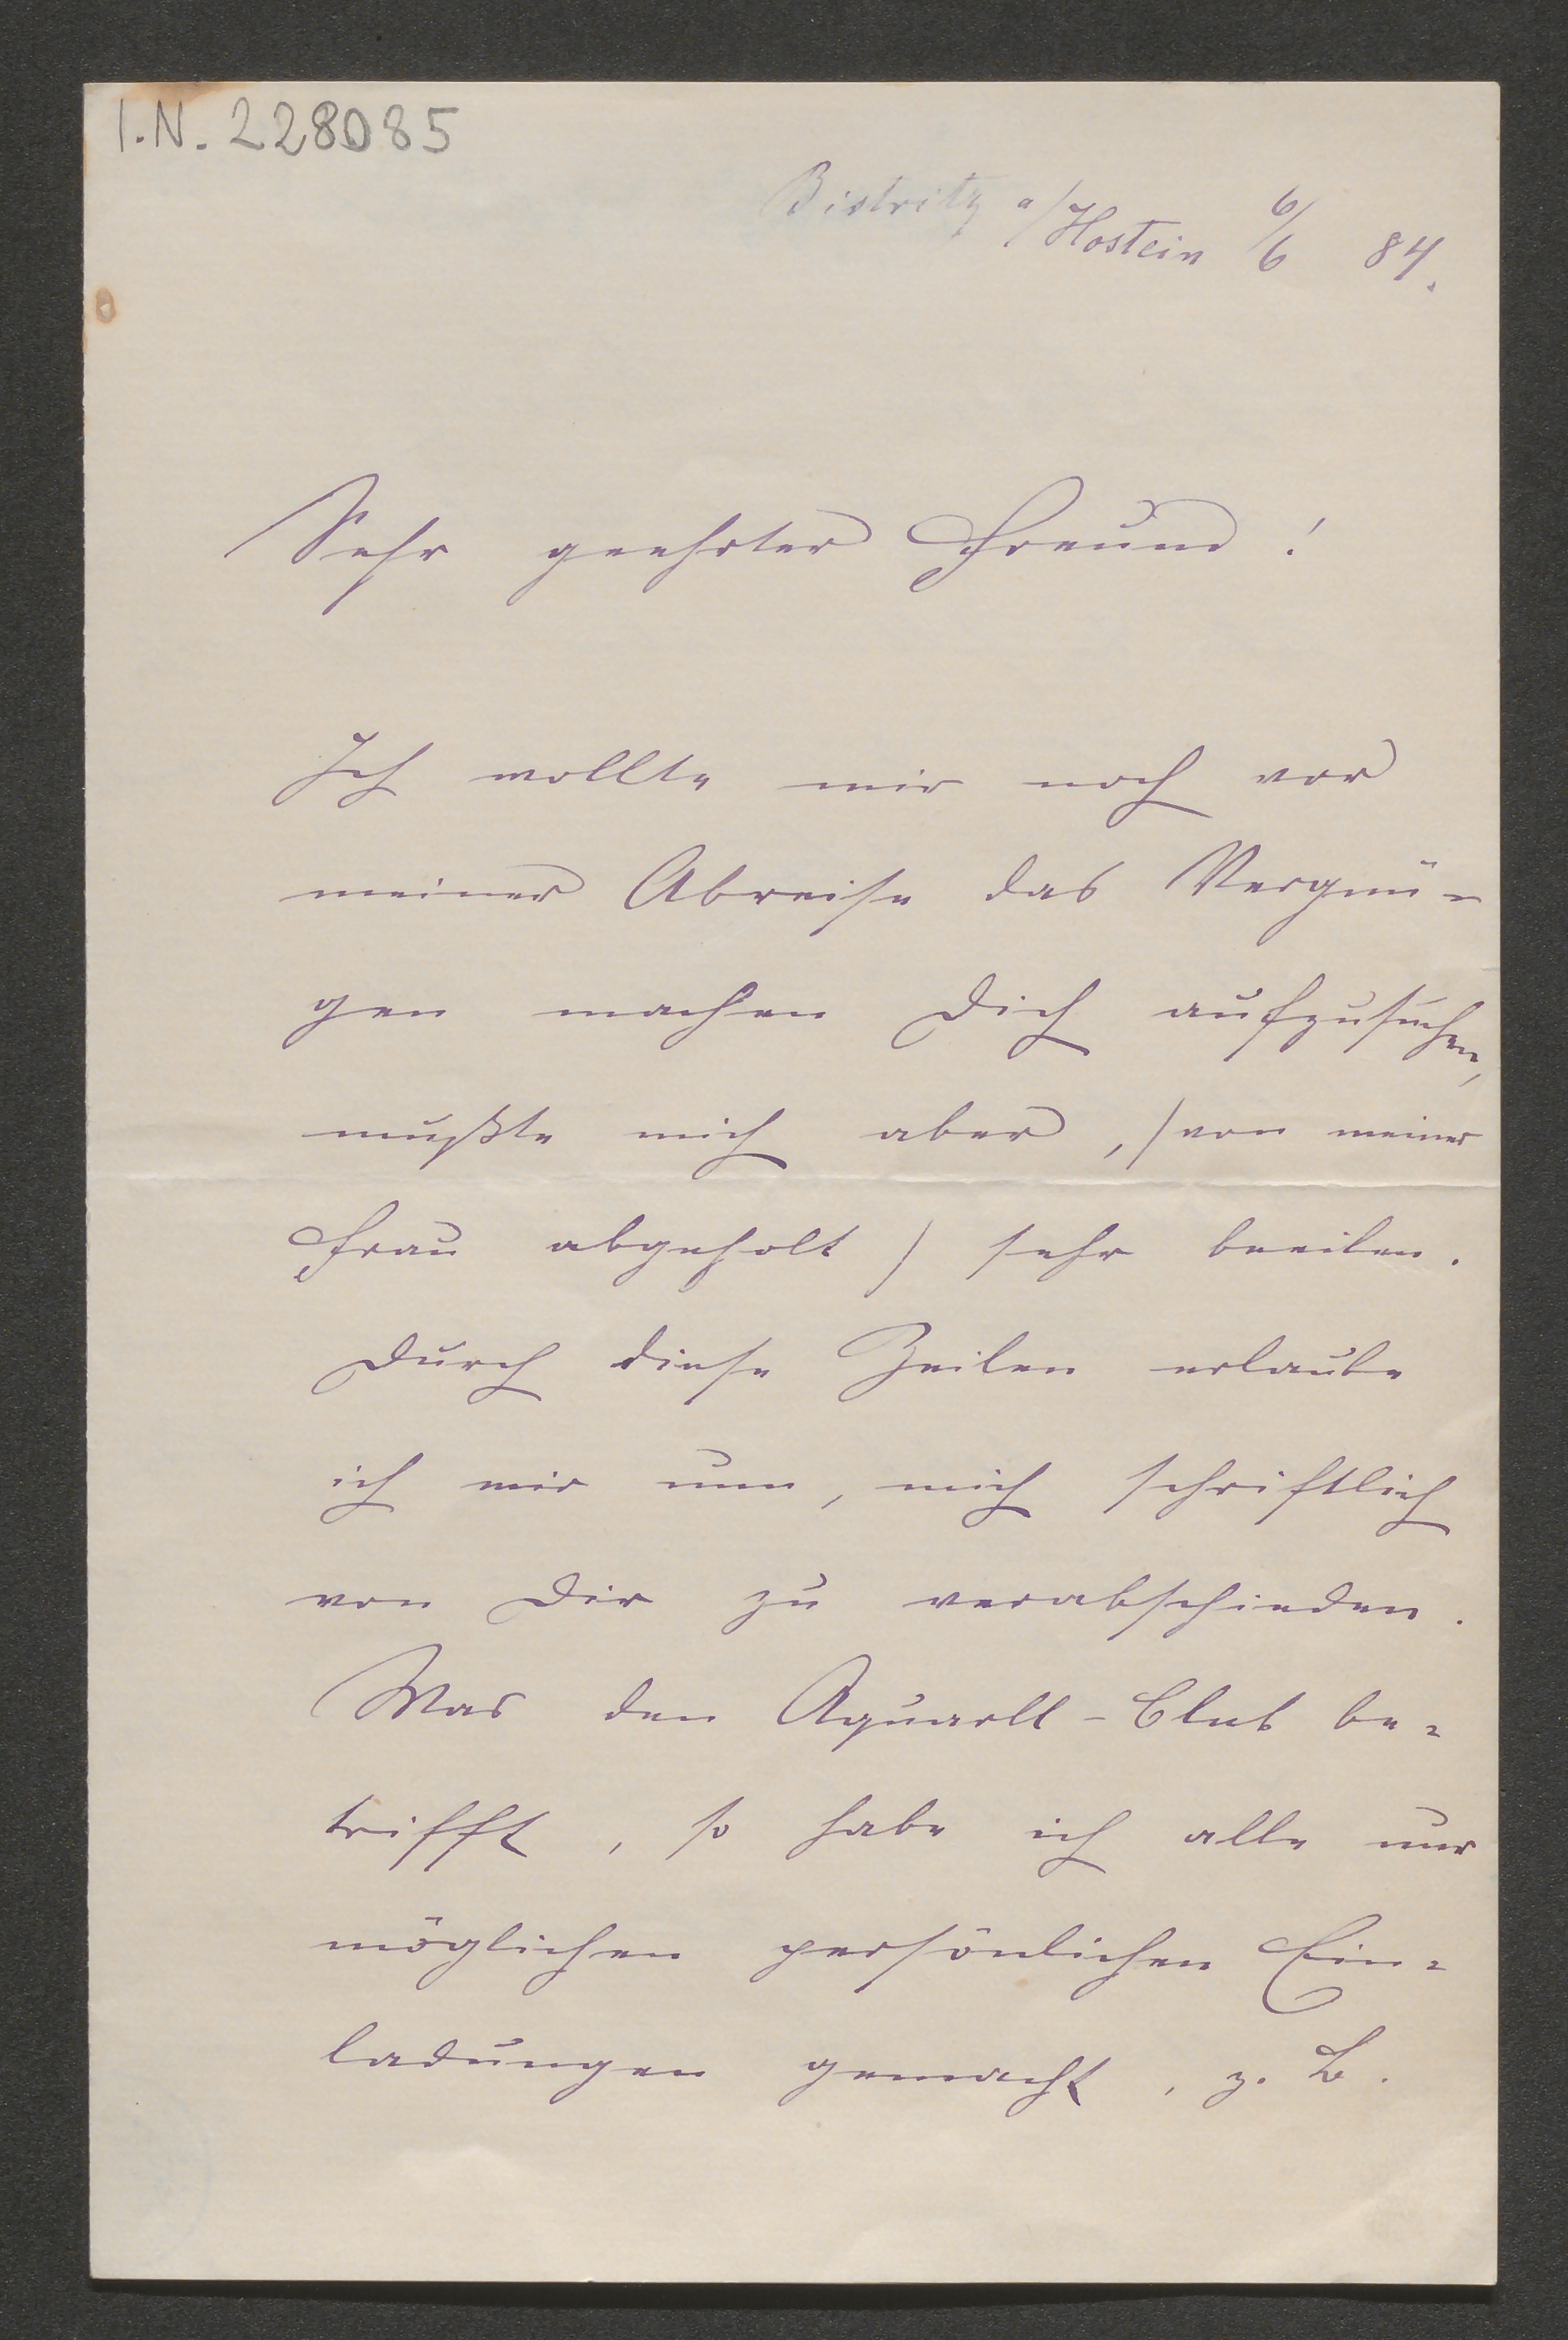 I.N. 228085
Bistritz a/Hostein 6/6 84.
Sehr geehrter Freund!
Ich wollte mir noch vor
meiner Abreise das Vergnü-
gen machen Dich aufzusuchen,
mußte mich aber, /von meiner
Frau abgeholt/ sehr beeilen.
Durch diese Zeilen erlaube
ich mir nun, mich schriftlich
von Dir zu verabschieden.
Was den Aquarell-Club be-
trifft, so habe ich alle nur
möglichen persönlichen Ein-
ladungen gemacht, z. B.